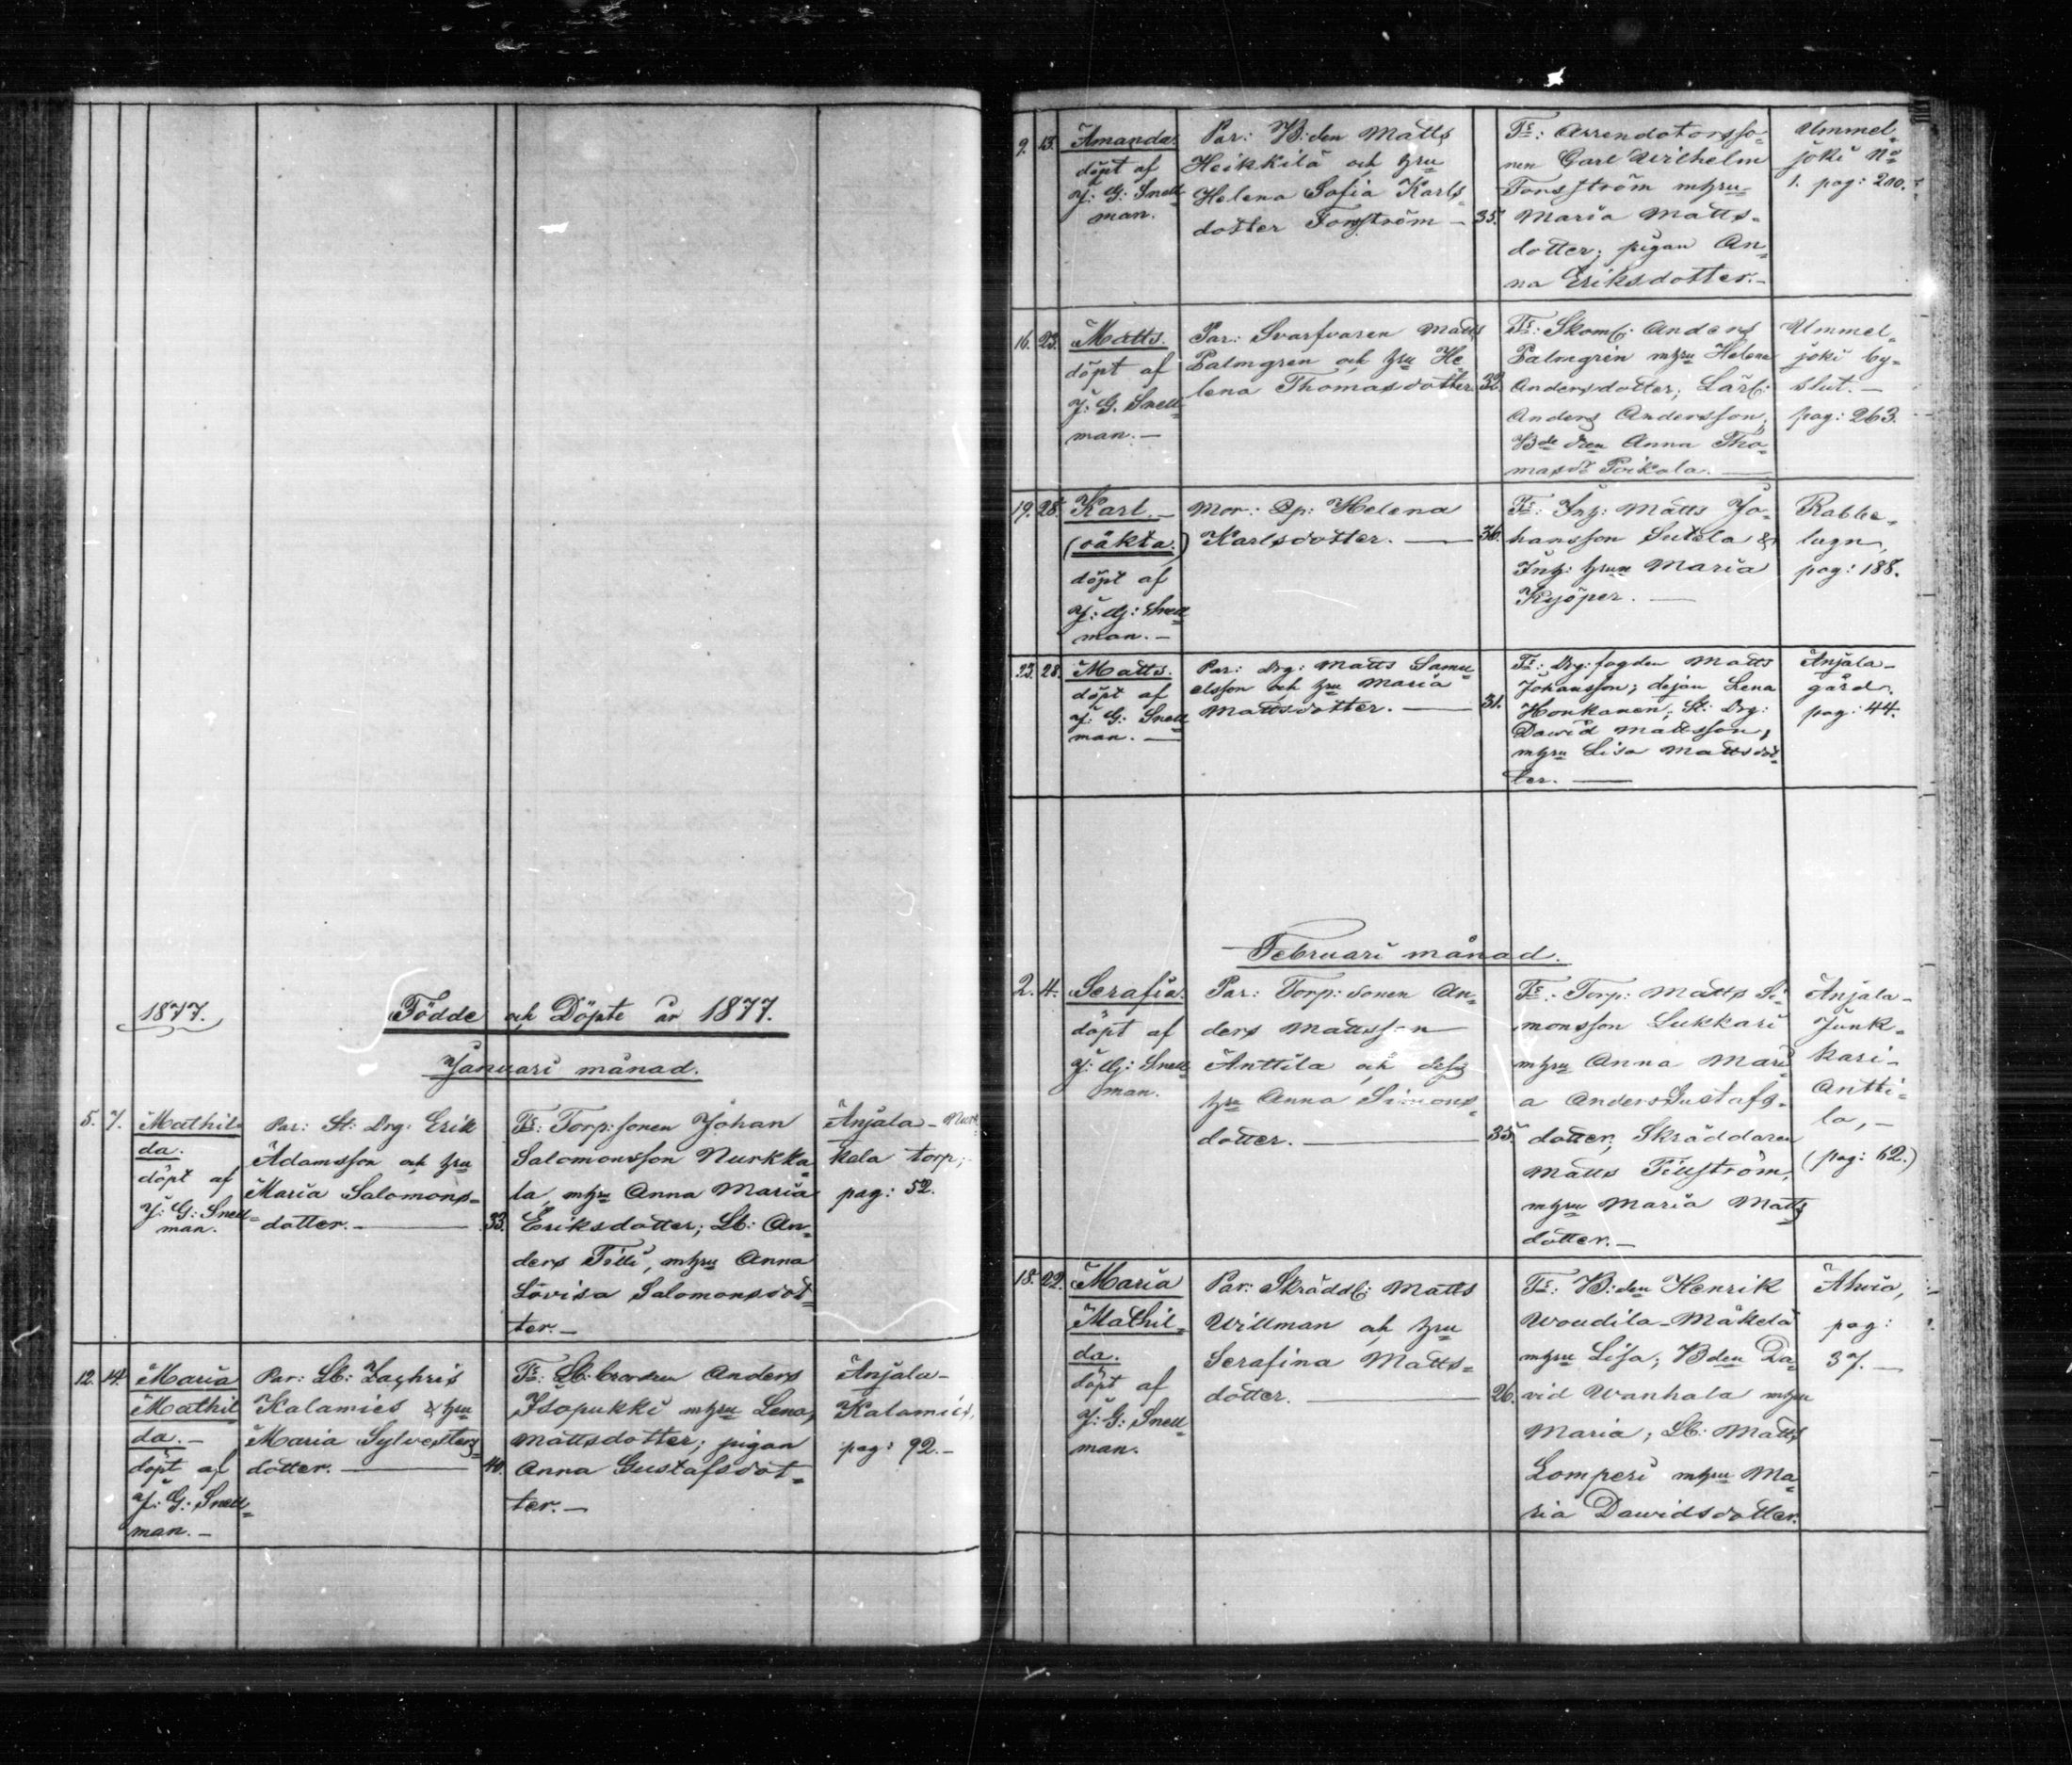 1877. Födde och Döpte år 1877.
Januari månad.
5. 7. Mathil=
da.
döpt af
J: G: Snell=
man.
Par: St: Drg: Erik
Adamsson och hru
Maria Salomons=
dotter. — 33.
Fr: Torp: sonen Johan
Salomonsson Nurkka=
la, mhru Anna Maria
Eriksdotter; Lb: An=
ders Filli, mhru Anna
Lovisa Salomonsdot=
ter. —
Anjala - Nurk=
kala torp;
pag: 52.
12. 14. Maria
Mathil
da. —
döpt af
J: G: Snell=
man. —
Par: Lb: Zachris
Kalamies & hru
Maria Sylvesters=
dotter. — 40.
Fr: Lb: Anders
Isopukki mhru Lena
Mattsdotter; pigan
Anna Gustafsdot=
ter. —
Anjala -
Kalamies,
pag: 92. —
9. 13. Amanda.
döpt af
J: G: Snell=
man.
Par: B: den Matts
Heikkilä och hru
Helena Sofia Karls=
dotter Forsström — 35.
Fr: Arrendatorsso=
nen Carl Wilhelm
Forsström mhru
Maria Matts=
dotter; pigan An=
na Eriksdotter. —
Ummel=
joki No
1. pag: 200.
16. 23. Matts.
döpt af
J: G. Snell=
man. —
Par: Svarfvaren Matts
Palmgren och hru He
lena Thomasdotter 32.
Fr: Skom: Anders
Palmgrén mhru Helena
Andersdotter; Lärl:
Anders Andersson,
Bde dren Anna Tho=
masdr Poikola. —
Ummel=
joki by=
slut. —
pag: 263.
19. 28. Karl. —
(oäkta.)
döpt af
J: G: Snell=
man. —
Mor: Pp: Helena
Karlsdotter. — 36.
Fr: Inh: Matts Jo=
hansson Sutela &
Inh: hrun Maria
Kyöper. —
Rabbe=
lugn,
pag: 188.
23. 28. Matts.
döpt af
J: G: Snell=
man. —
Par: Drg: Matts Samu=
elsson och hru Maria
Mattsdotter. — 31.
Fr: Drg: fogden Matts
Johansson; dejan Lena
Honkanen; St: Drg:
Dawid Mattsson,
mhru Lisa Mattsdot=
ter. —
Anjala -
gård.
pag: 44.
Februari månad.
2. 4. Serafia.
döpt af
J: G: Snell=
man.
Par: Torp: sonen An=
ders Mattsson
Anttila och dess
hru Anna Simons=
dotter. — 35.
Fr: Torp: Matts Si=
monsson Lukkari
mhru Anna Mari
a Anders Gustafs=
dotter; Skräddaren
Matts Filström,
mhru Maria Matts
dotter. —
Anjala -
Junk=
kari -
Antti=
la, —
(pag: 62.)
18. 22. Maria
Mathil=
da.
döpt af
J: G: Snell=
man.
Par: Skräddl: Matts
Willman och hru
Serafina Matts=
dotter. — 26.
Fr: B: den Henrik
Woudila - Mäkelä
mhru Lisa; Bden Da=
vid Wanhala mhru
Maria; Lb: Matts
Lomperi mhru Ma=
ria Dawidsdotter.
Ahvio,
pag:
37. —